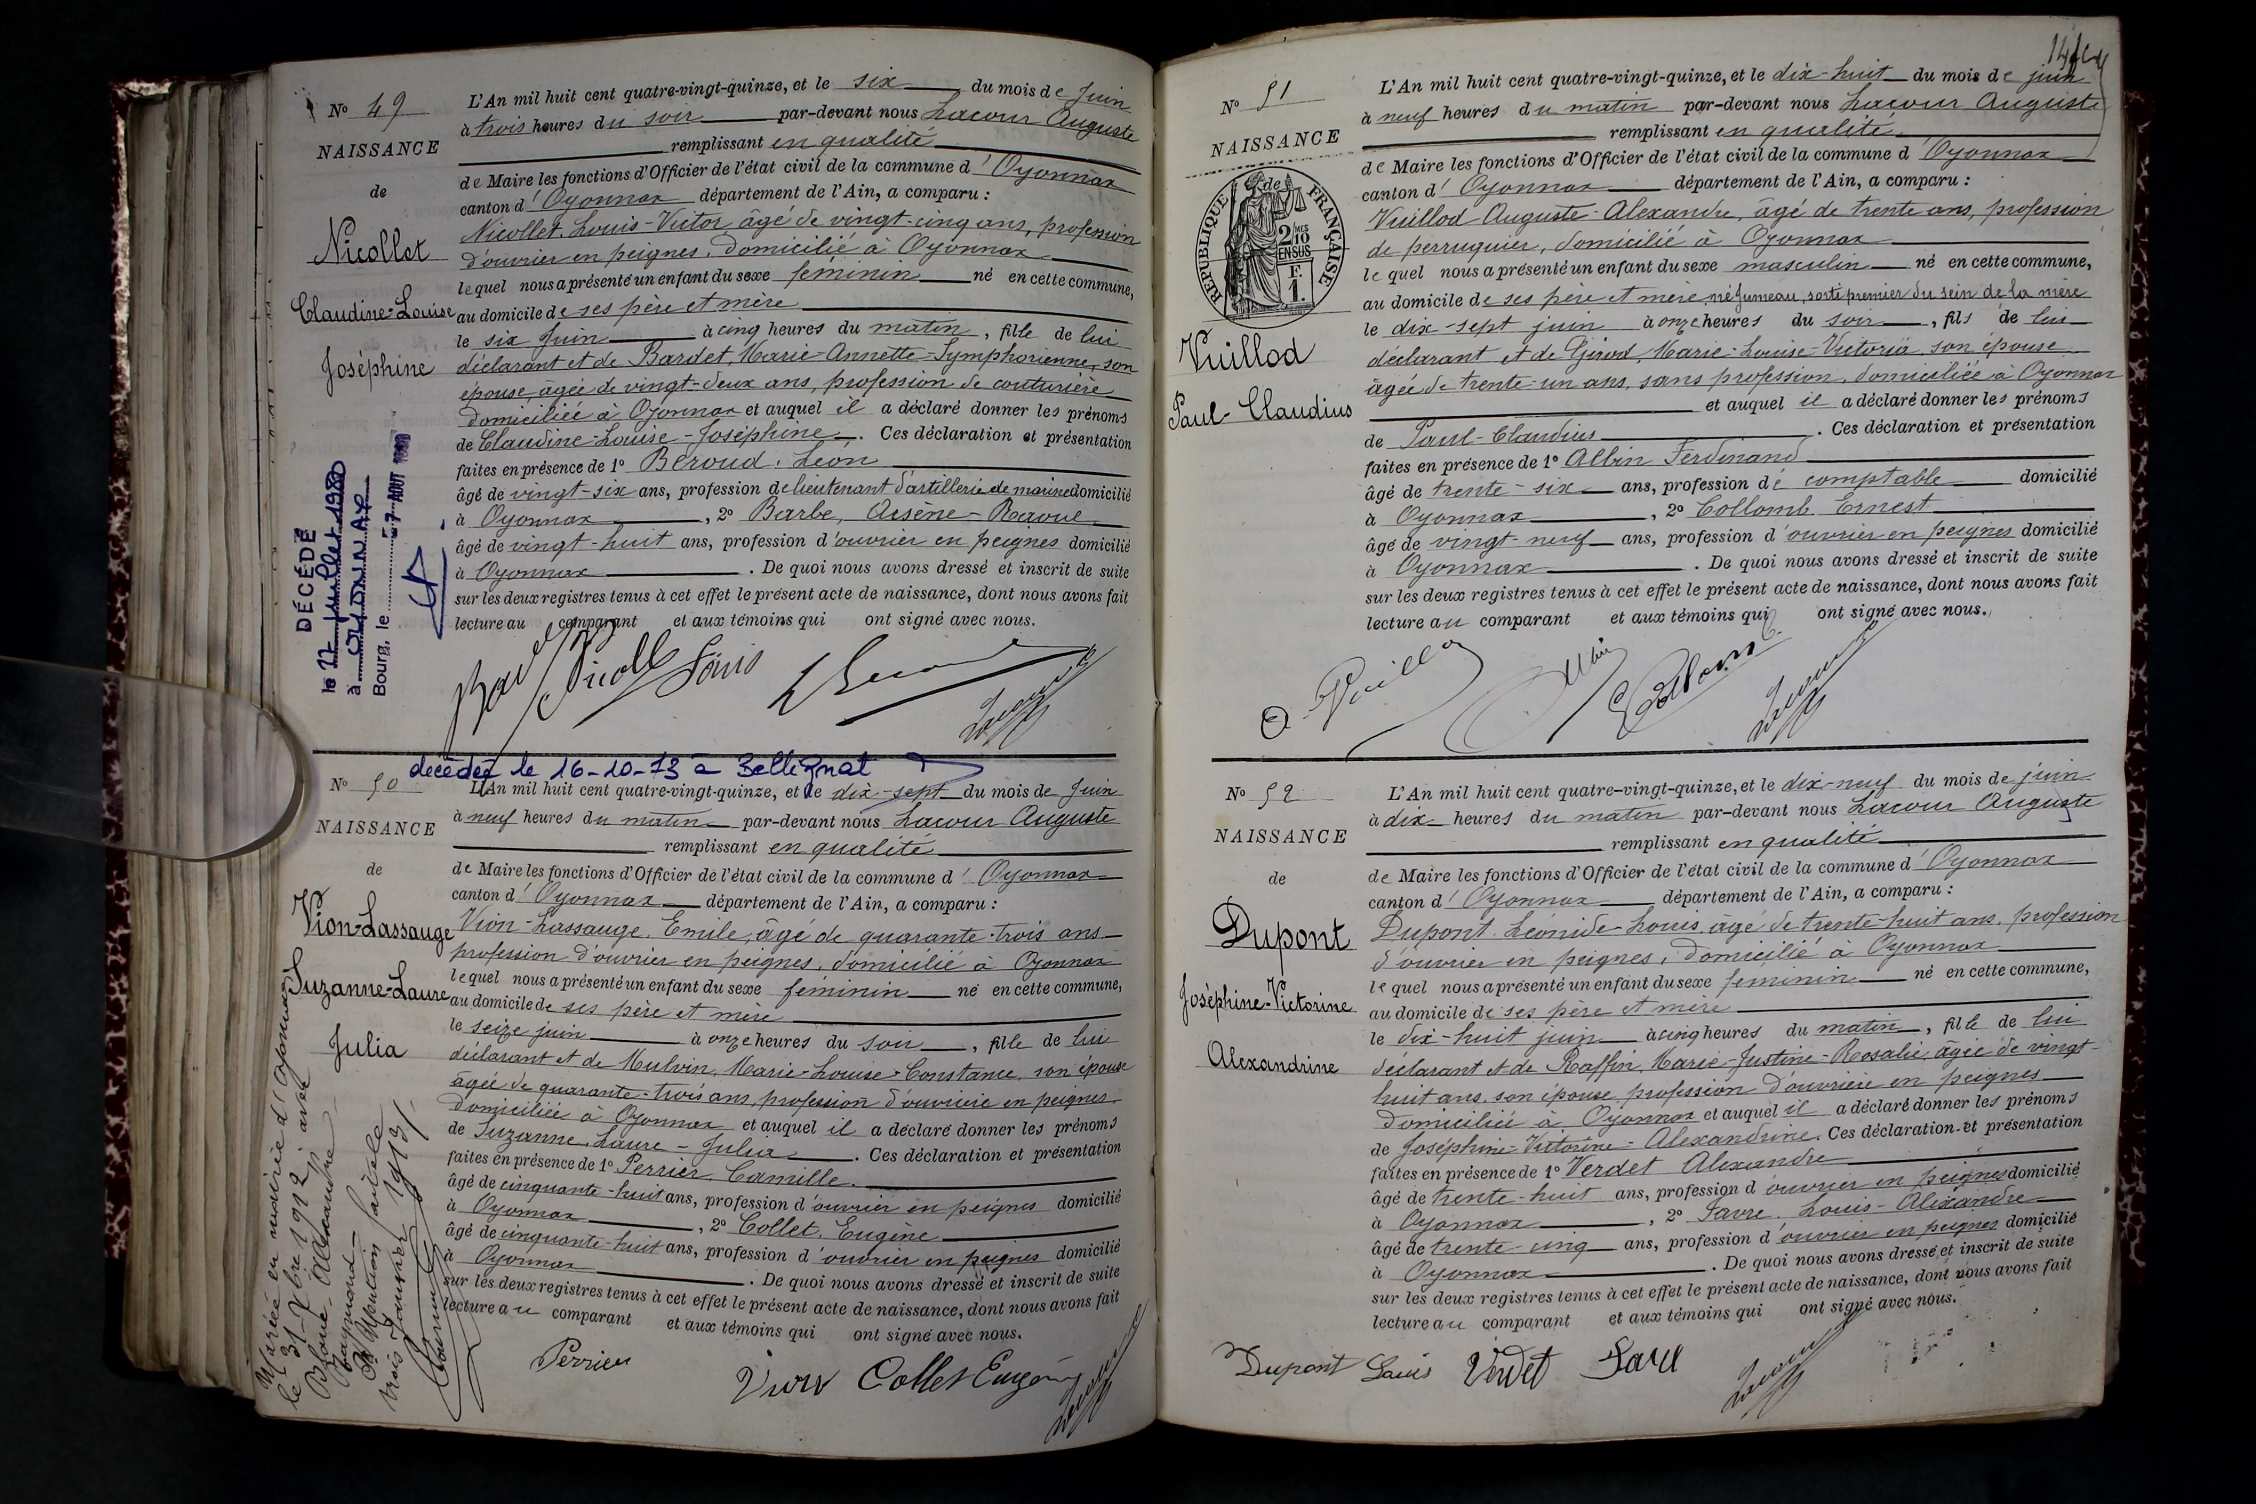 N° 49
NAISSANCE
de
Nicollet
Claudine-Louise
Joséphine
DÉCÉDÉ
le 22 juillet 1980
à OYONNAX
Bourg, le 27 AOUT
L'An mil huit cent quatre-vingt-quinze, et le six du mois de Juin
à trois heures du soir par-devant nous Lacour Auguste
remplissant en qualité
de Maire les fonctions d'Officier de l'état civil de la commune d'Oyonnax
canton d'Oyonnax département de l'Ain, a comparu :
Nicollet, Louis-Victor, âgé de vingt-cinq ans, profession
d'ouvrier en peignes, domicilié à Oyonnax
lequel nous a présenté un enfant du sexe féminin né en cette commune,
au domicile de ses père et mère
le six Juin à cinq heures du matin, fille de lui
déclarant et de Bardet, Marie-Annette-Symphorienne, son
épouse, âgée de vingt-deux ans, profession de couturière
domiciliée à Oyonnax et auquel il a déclaré donner les prénoms
de Claudine-Louise-Joséphine. Ces déclaration et présentation
faites en présence de 1° Béroud, Léon
âgé de vingt-six ans, profession de lieutenant d'artillerie de marine domicilié
à Oyonnax, 2° Barbe, Arsène-Raoul
âgé de vingt-huit ans, profession d'ouvrier en peignes domicilié
à Oyonnax. De quoi nous avons dressé et inscrit de suite
sur les deux registres tenus à cet effet le présent acte de naissance, dont nous avons fait
lecture au comparant et aux témoins qui ont signé avec nous.
Nicollet Louis
décédée le 16-10-73 à Bellignat
N° 50
NAISSANCE
de
Vion-Lassauge
Suzanne-Laure
Julia
Mariée en mairie d'Oyonnax
le 31 Xbre 1912 avec
Blanc Alexandre
Raymond
Pr Mention faite le
trois Janvier 1913
L'An mil huit cent quatre-vingt-quinze, et le dix-sept du mois de Juin
à neuf heures du matin par-devant nous Lacour Auguste
remplissant en qualité
de Maire les fonctions d'Officier de l'état civil de la commune d'Oyonnax
canton d'Oyonnax département de l'Ain, a comparu :
Vion-Lassauge, Emile, âgé de quarante-trois ans
profession d'ouvrier en peignes, domicilié à Oyonnax
lequel nous a présenté un enfant du sexe féminin né en cette commune,
au domicile de ses père et mère
le seize juin à onze heures du soir, fille de lui
déclarant et de Mulvin, Marie-Louise-Constance, son épouse
âgée de quarante-trois ans, profession d'ouvrière en peignes
domiciliée à Oyonnax et auquel il a déclaré donner les prénoms
de Suzanne-Laure-Julia. Ces déclaration et présentation
faites en présence de 1° Perrier, Camille
âgé de cinquante-huit ans, profession d'ouvrier en peignes domicilié
à Oyonnax, 2° Collet, Eugène
âgé de cinquante-huit ans, profession d'ouvrier en peignes domicilié
à Oyonnax. De quoi nous avons dressé et inscrit de suite
sur les deux registres tenus à cet effet le présent acte de naissance, dont nous avons fait
lecture au comparant et aux témoins qui ont signé avec nous.
Perrier Vion Collet Eugène Lacour
N° 51
NAISSANCE
de
RÉPUBLIQUE FRANÇAISE
2/10 EN SUS
F.
1.
Vuillod
Paul-Claudius
L'An mil huit cent quatre-vingt-quinze, et le dix-huit du mois de juin
à neuf heures du matin par-devant nous Lacour Auguste
remplissant en qualité
de Maire les fonctions d'Officier de l'état civil de la commune d'Oyonnax
canton d'Oyonnax département de l'Ain, a comparu :
Vuillod Auguste-Alexandre, âgé de trente ans, profession
de perruquier, domicilié à Oyonnax
lequel nous a présenté un enfant du sexe masculin né en cette commune,
au domicile de ses père et mère, né jumeau, sorti premier du sein de la mère
le dix-sept juin à onze heures du soir, fils de lui
déclarant et de Girod, Marie-Louise-Victoria son épouse
âgée de trente-un ans, sans profession, domiciliée à Oyonnax
et auquel il a déclaré donner les prénoms
de Paul-Claudius. Ces déclaration et présentation
faites en présence de 1° Albin Ferdinand
âgé de trente-six ans, profession de comptable domicilié
à Oyonnax, 2° Collomb Ernest
âgé de vingt-neuf ans, profession d'ouvrier en peignes domicilié
à Oyonnax. De quoi nous avons dressé et inscrit de suite
sur les deux registres tenus à cet effet le présent acte de naissance, dont nous avons fait
lecture au comparant et aux témoins qui ont signé avec nous.
A. Vuillod Albin E Collomb Lacour
N° 52
NAISSANCE
de
Dupont
Joséphine-Victorine
Alexandrine
L'An mil huit cent quatre-vingt-quinze, et le dix-neuf du mois de juin
à dix heures du matin par-devant nous Lacour Auguste
remplissant en qualité
de Maire les fonctions d'Officier de l'état civil de la commune d'Oyonnax
canton d'Oyonnax département de l'Ain, a comparu :
Dupont Léonide-Louis, âgé de trente-huit ans, profession
d'ouvrier en peignes, domicilié à Oyonnax
lequel nous a présenté un enfant du sexe féminin né en cette commune,
au domicile de ses père et mère
le dix-huit juin à cinq heures du matin, fille de lui
déclarant et de Raffin, Marie-Justine-Rosalie, âgée de vingt-
huit ans, son épouse, profession d'ouvrière en peignes
domiciliée à Oyonnax et auquel il a déclaré donner les prénoms
de Joséphine-Victorine-Alexandrine. Ces déclaration et présentation
faites en présence de 1° Verdet Alexandre
âgé de trente-huit ans, profession d'ouvrier en peignes domicilié
à Oyonnax, 2° Savre Louis-Alexandre
âgé de trente-cinq ans, profession d'ouvrier en peignes domicilié
à Oyonnax. De quoi nous avons dressé et inscrit de suite
sur les deux registres tenus à cet effet le présent acte de naissance, dont nous avons fait
lecture au comparant et aux témoins qui ont signé avec nous.
Dupont Louis Verdet Lacour